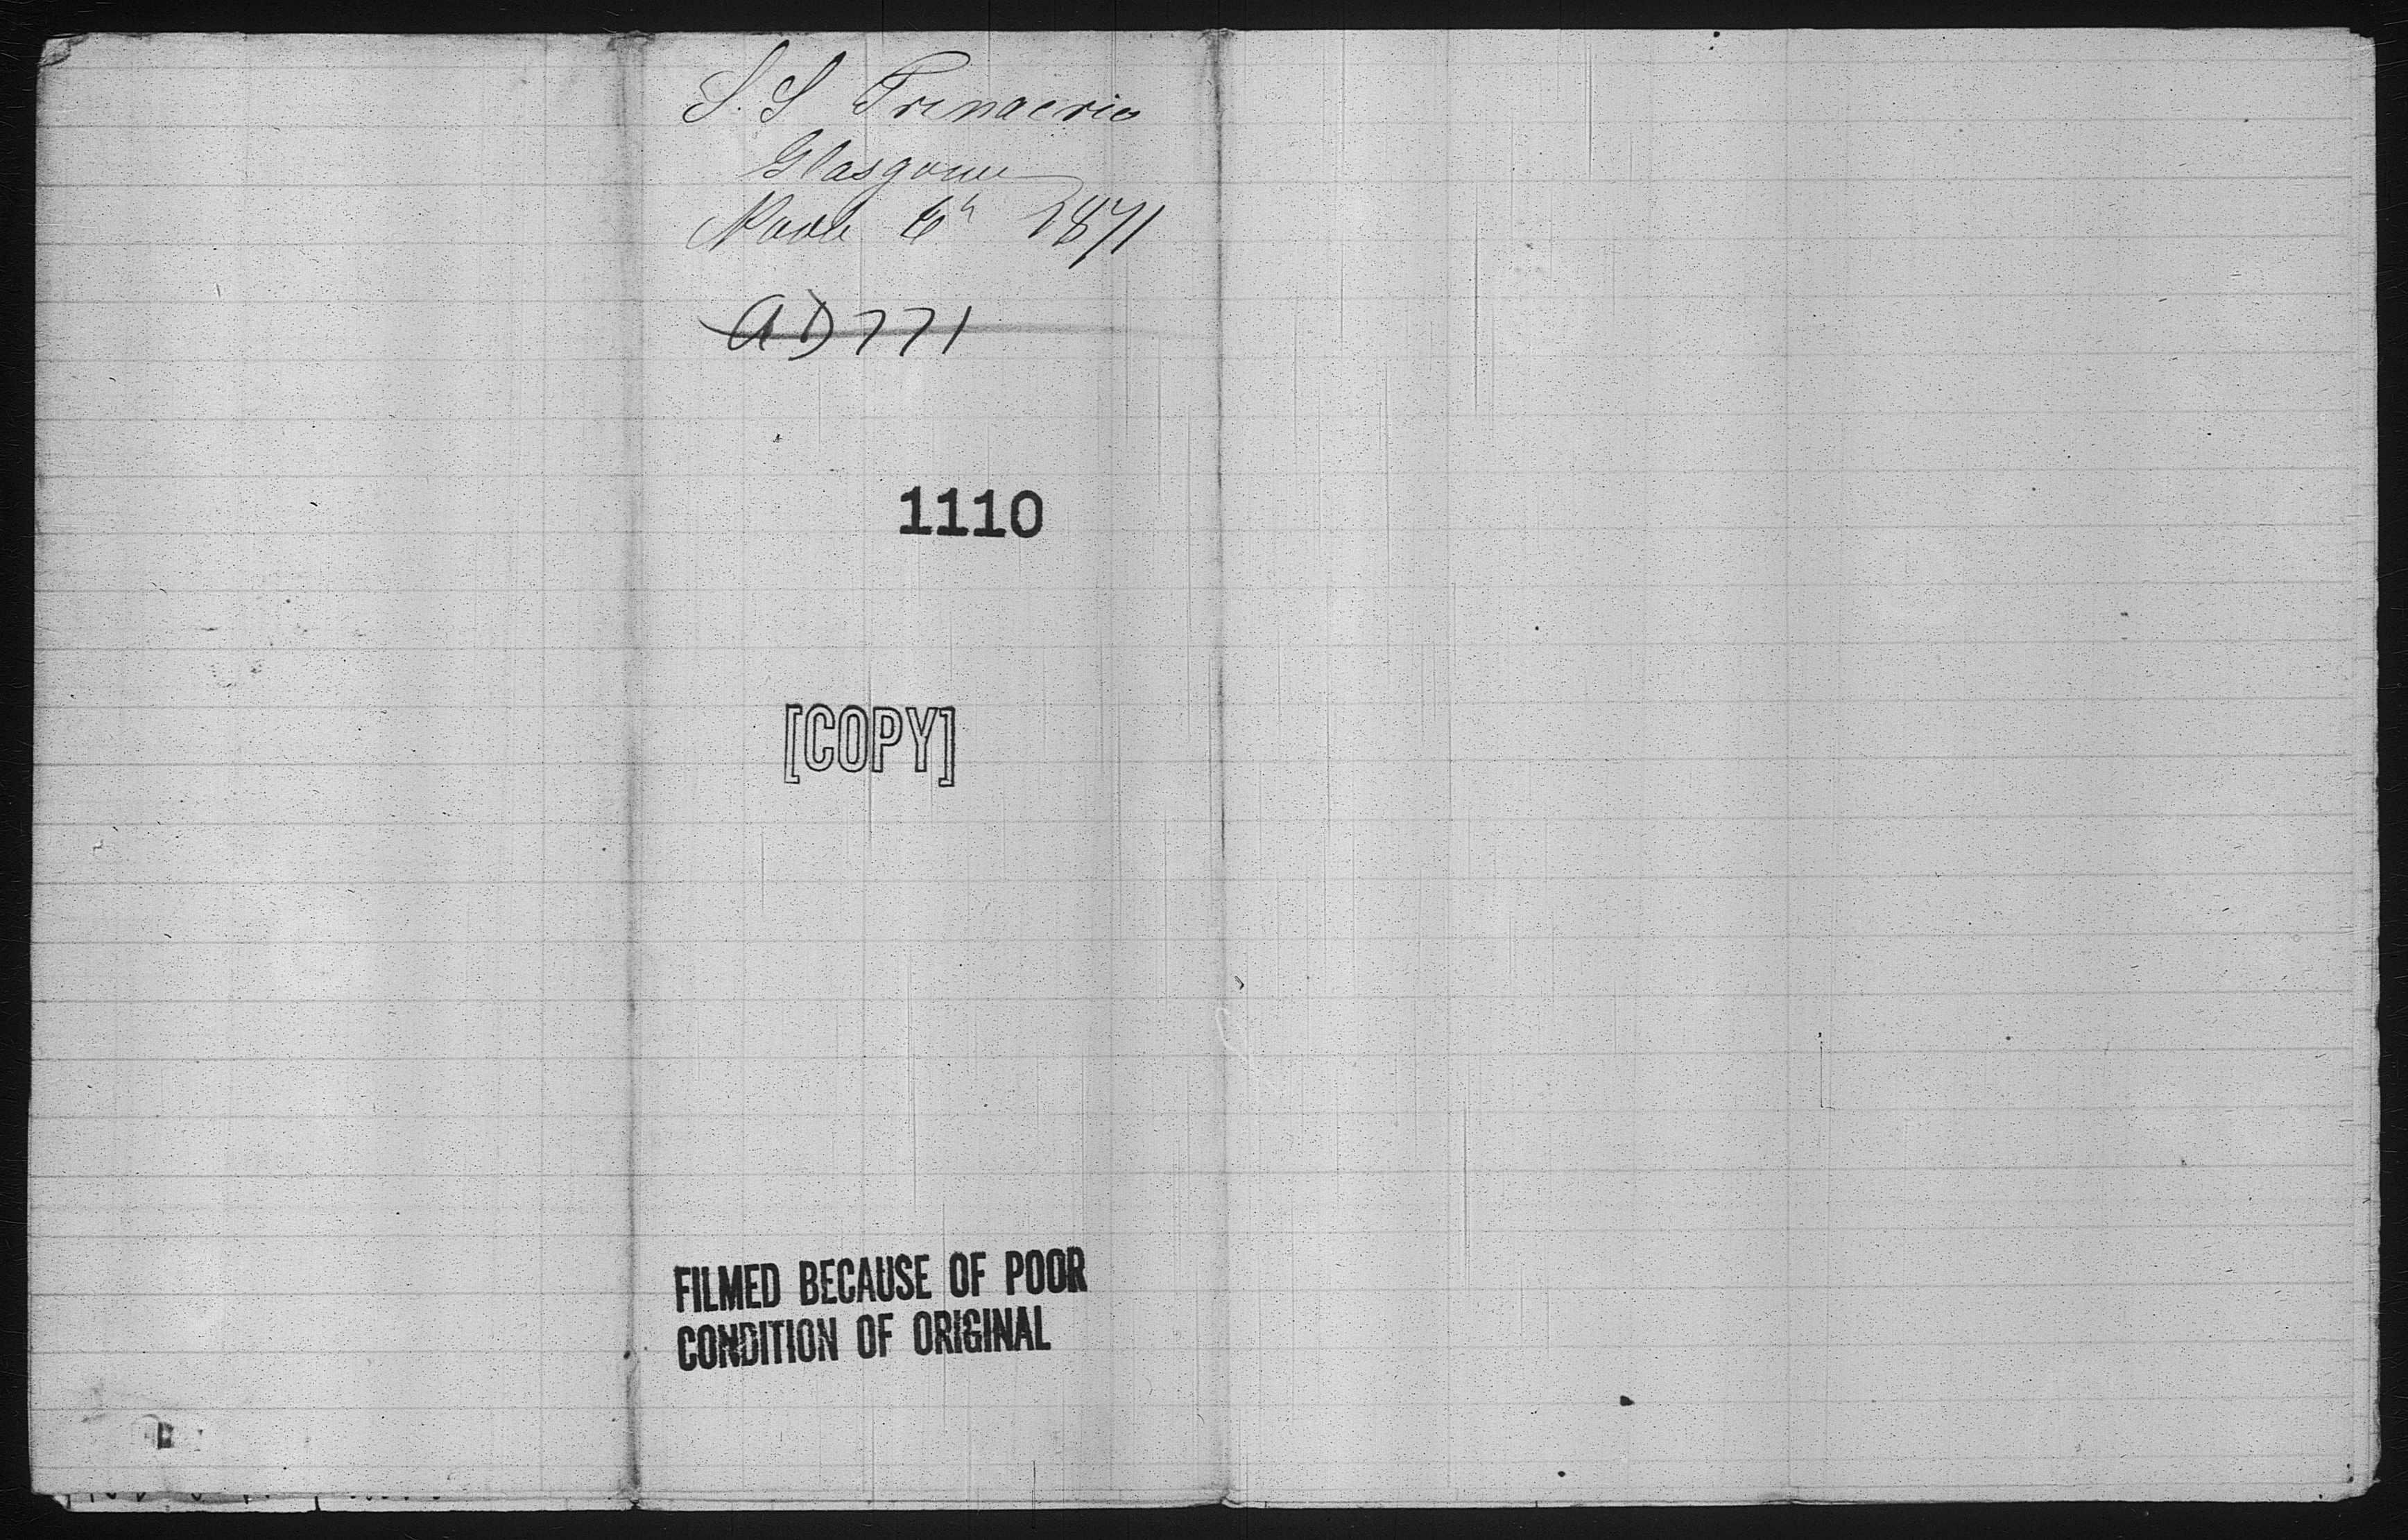 S. S Trinacria
Glasgow
Novb 6h 1871
AD 771
1110
[COPY]
FILMED BECAUSE OF POOR
CONDITION OF ORIGINAL